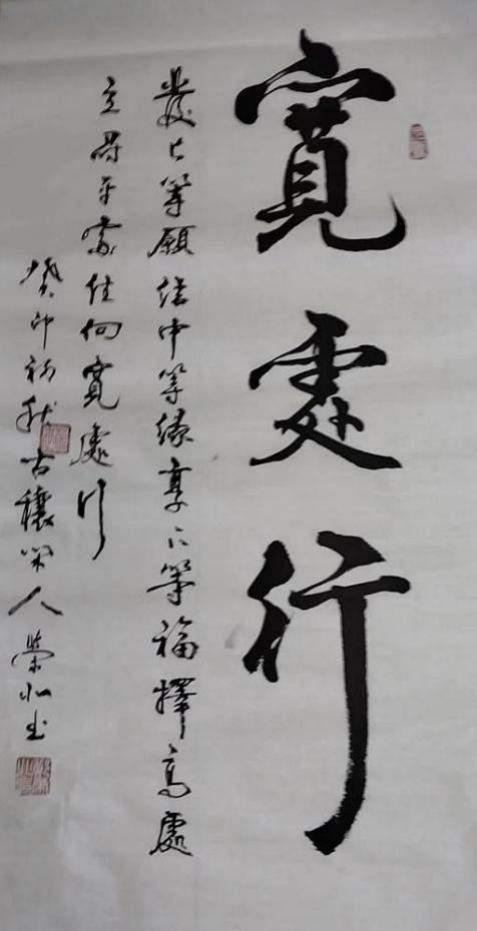 寬處行
發上等願結中等緣享下等福擇高處
立尋平處住向寬處行
癸卯初秋古穰閑人榮
书